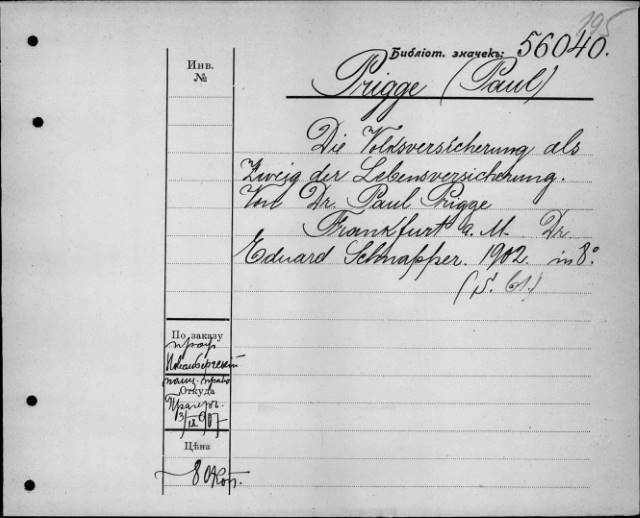 195
Библіот. значекъ: 56040.
Инв.
№
Prigge (Paul)
Die Volksversicherung als
Zweig der Lebensversicherung.
Von Dr. Paul Prigge
Frankfurt a. M. Dr.
Eduard Schnapper. 1902. in 8°.
По заказу
проф
полиц. право
Откуда
Цѣна
80 коп.